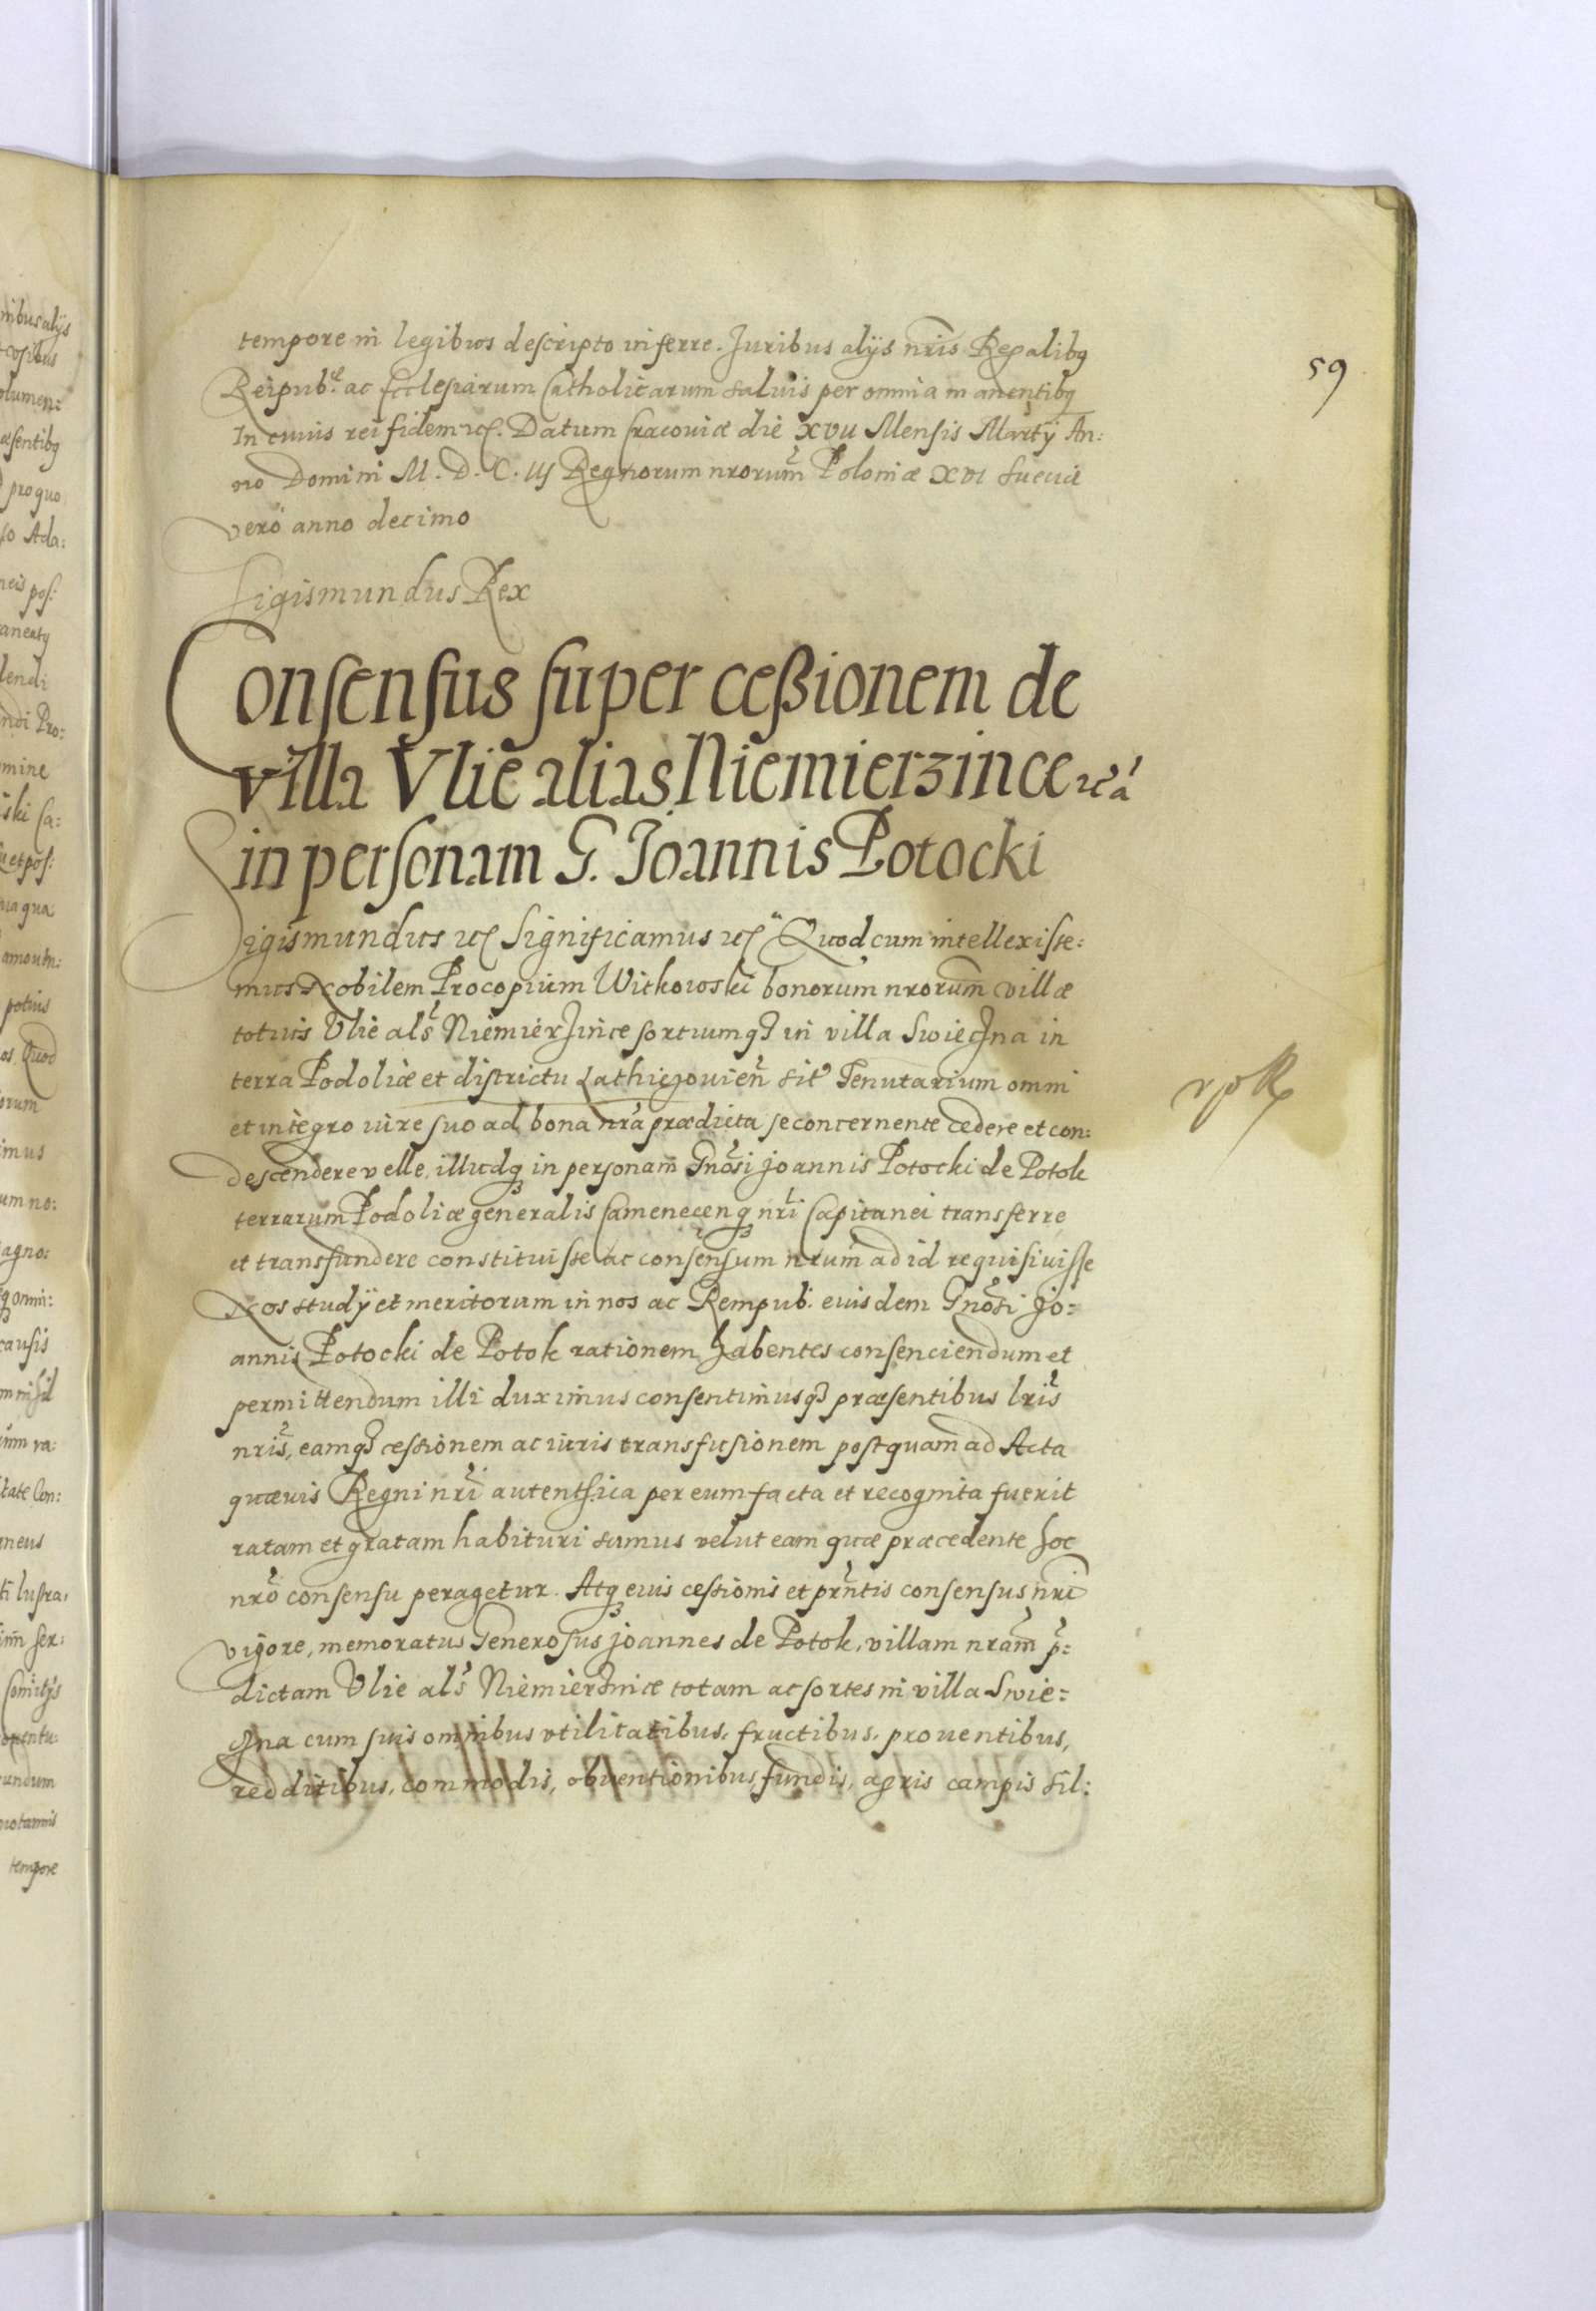 59
tempore in legibus descripto inferre. Juribus alijs nr̃is Regalibq
Reipub.ͤ ac Ecclesiarum Catholicarum saluis per omnia manentibq
In cuius rei fidem etc. Datum Cracouiæ die XVII Mensis Martij An:
no Domini M. D. C. III Regnorum nrorum̃ Poloniæ XVI Sueciæ
verò anno decimo
Sigismundus Rex
Consensus super ceßionem de
villa Vlie alias Niemierzince etcᵃ
in personam G. Joannis Potocki
Sigismundus etc Significamus etc Quod cum intellexisse:
mus Nobilem Procopium Witkowski bonorum nrorum̃ villæ
totius Vlie als̃ Niemierzince sortiumqꝫ in villa Swieczna in
terra Podoliæ et districtu Lathiczouien̄ sit. Tenutarium omni
et integro iure suo ad bona nr̃a prædicta se concernente cedere et con:
descendere velle, illudqꝫ in personam Gnõsi Joannis Potocki de Potok
terrarum Podoliæ generalis Camenecenqꝫ nr̃i Capitanei transferre
et transfundere constituisse ac consensum nrum̃ ad id requisiuisse
Nos studij et meritorum in nos ac Rempub. eiusdem Gnõsi Jo:
annis Potocki de Potok rationem habentes consenciendum et
permittendum illi duximus consentimusqꝫ præsentibus lr̃is
nr̃is, eamqꝫ cessionem ac iuris transfusionem postquam ad Acta
quæuis Regni nr̃i autenthica per eum facta et recognita fuerit
ratam et gratam habituri sumus velut eam quæ præcedente hoc
nrõ consensu peragetur. Atqꝫ eius cessionis et prñtis consensus nr̃i
vigore, memoratus Generosus Joannes de Potok, villam nram̃ p̃:
dictam Vlie als̃ Niemierzince totam ac sortes in villa Swie:
czna cum suis omnibus vtilitatibus, fructibus, prouentibus,
redditibus, commodis, obuentionibus, fundis, agris campis sil: